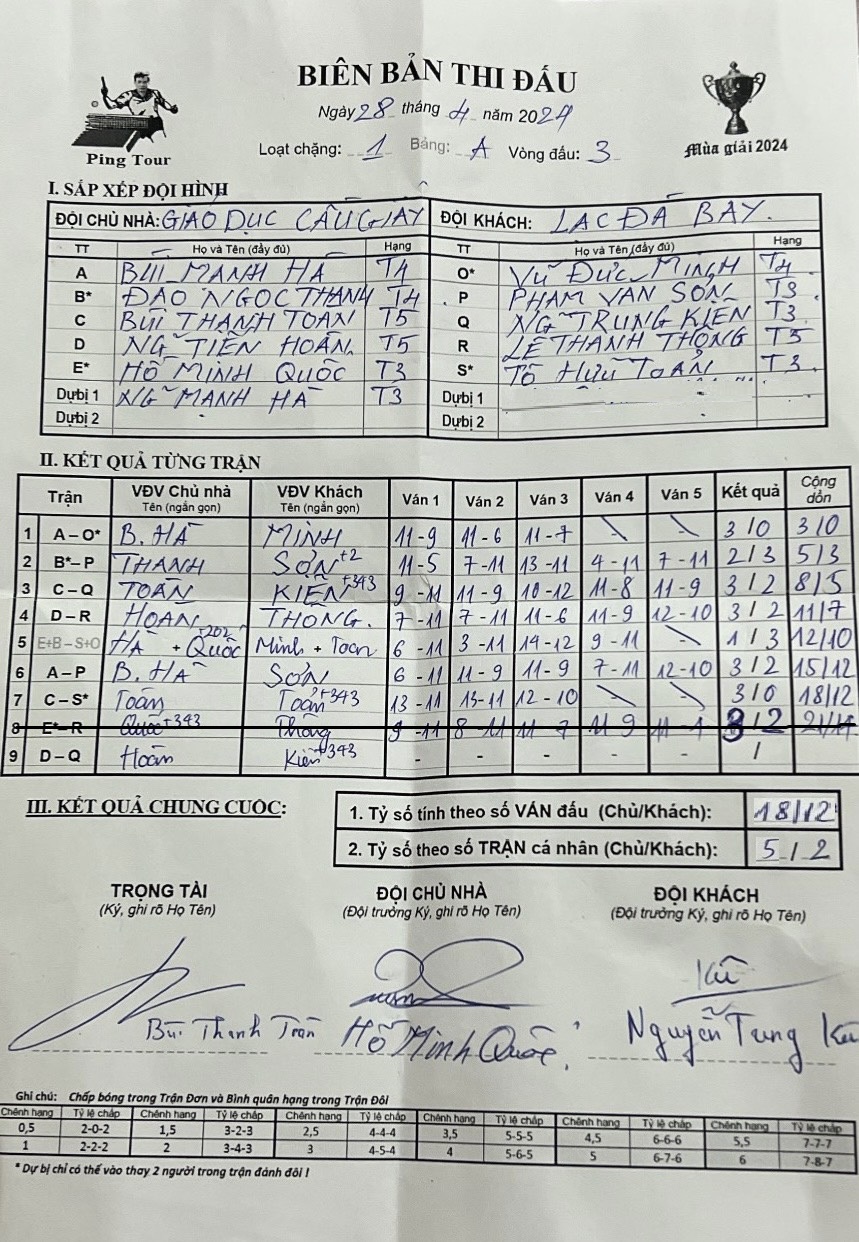 BIÊN BẢN THI ĐẤU
Ngày 28 tháng 4 năm 2024
Ping Tour
Loạt chặng: 1 Bảng: A Vòng đấu: 3
Mùa giải 2024
I. SẮP XẾP ĐỘI HÌNH
ĐỘI CHỦ NHÀ: GIÁO DỤC CẦU GIẤY ĐỘI KHÁCH: LẠC ĐÀ BAY.
TT Họ và Tên (đầy đủ) Hạng TT Họ và Tên (đầy đủ) Hạng
A BÙI MẠNH HÀ T4 O* VŨ ĐỨC MINH T4
B* ĐÀO NGỌC THANH T4 P PHẠM VĂN SƠN T3
C BÙI THANH TOÀN T5 Q NG~ TRUNG KIÊN T3
D NG~ TIẾN HOÀN. T5 R LÊ THANH THÔNG T5
E* HỒ MINH QUỐC T3 S* TÔ HỮU TOẢN T3
Dựbị 1 NG~ MẠNH HÀ T3 Dựbị 1
Dựbị 2 Dựbị 2
II. KẾT QUẢ TỪNG TRẬN
Trận VĐV Chủ nhà Tên (ngắn gọn) VĐV Khách Tên (ngắn gọn) Ván 1 Ván 2 Ván 3 Ván 4 Ván 5 Kết quả Cộng dồn
1 A – O* B. HÀ MINH 11-9 11-6 11-7 \ \ 3/0 3/0
2 B*– P THANH SƠN +2 11-5 7-11 13-11 4-11 7-11 2/3 5/3
3 C – Q TOÀN KIÊN +343 9-11 11-9 10-12 11-8 11-9 3/2 8/5
4 D – R HOAN THONG. 7-11 7-11 11-6 11-9 12-10 3/2 11/7
5 E+B – S+O HÀ + Quốc +202 Minh + Toan 6-11 3-11 14-12 9-11 \ 1/3 12/10
6 A – P B. HÀ SƠN 6-11 11-9 11-9 7-11 12-10 3/2 15/12
7 C – S* Toàn Toản +343 13-11 13-11 12-10 \ \ 3/0 18/12
8 E*– R Quốc +343 Thông 9-11 8-11 11-7 11 9 3/2
9 D – Q Hoàn Kiên +343 - - - - - /
III. KẾT QUẢ CHUNG CUỘC:
1. Tỷ số tính theo số VÁN đấu (Chủ/Khách): 18/12
2. Tỷ số theo số TRẬN cá nhân (Chủ/Khách): 5/2
TRỌNG TÀI ĐỘI CHỦ NHÀ ĐỘI KHÁCH
(Ký, ghi rõ Họ Tên) (Đội trưởng Ký, ghi rõ Họ Tên) (Đội trưởng Ký, ghi rõ Họ Tên)
Bùi Thanh Toàn Hồ Minh Quốc Nguyễn Trung
Ghi chú: Chấp bóng trong Trận Đơn và Bình quân hạng trong Trận Đôi
Chênh hạng Tỷ lệ chấp Chênh hạng Tỷ lệ chấp Chênh hạng Tỷ lệ chấp Chênh hạng Tỷ lệ chấp Chênh hạng Tỷ lệ chấp Chênh hạng Tỷ lệ chấp
0,5 2-0-2 1,5 3-2-3 2,5 4-4-4 3,5 5-5-5 4,5 6-6-6 5,5 7-7-7
1 2-2-2 2 3-4-3 3 4-5-4 4 5-6-5 5 6-7-6 6 7-8-7
* Dự bị chỉ có thể vào thay 2 người trong trận đánh đôi !